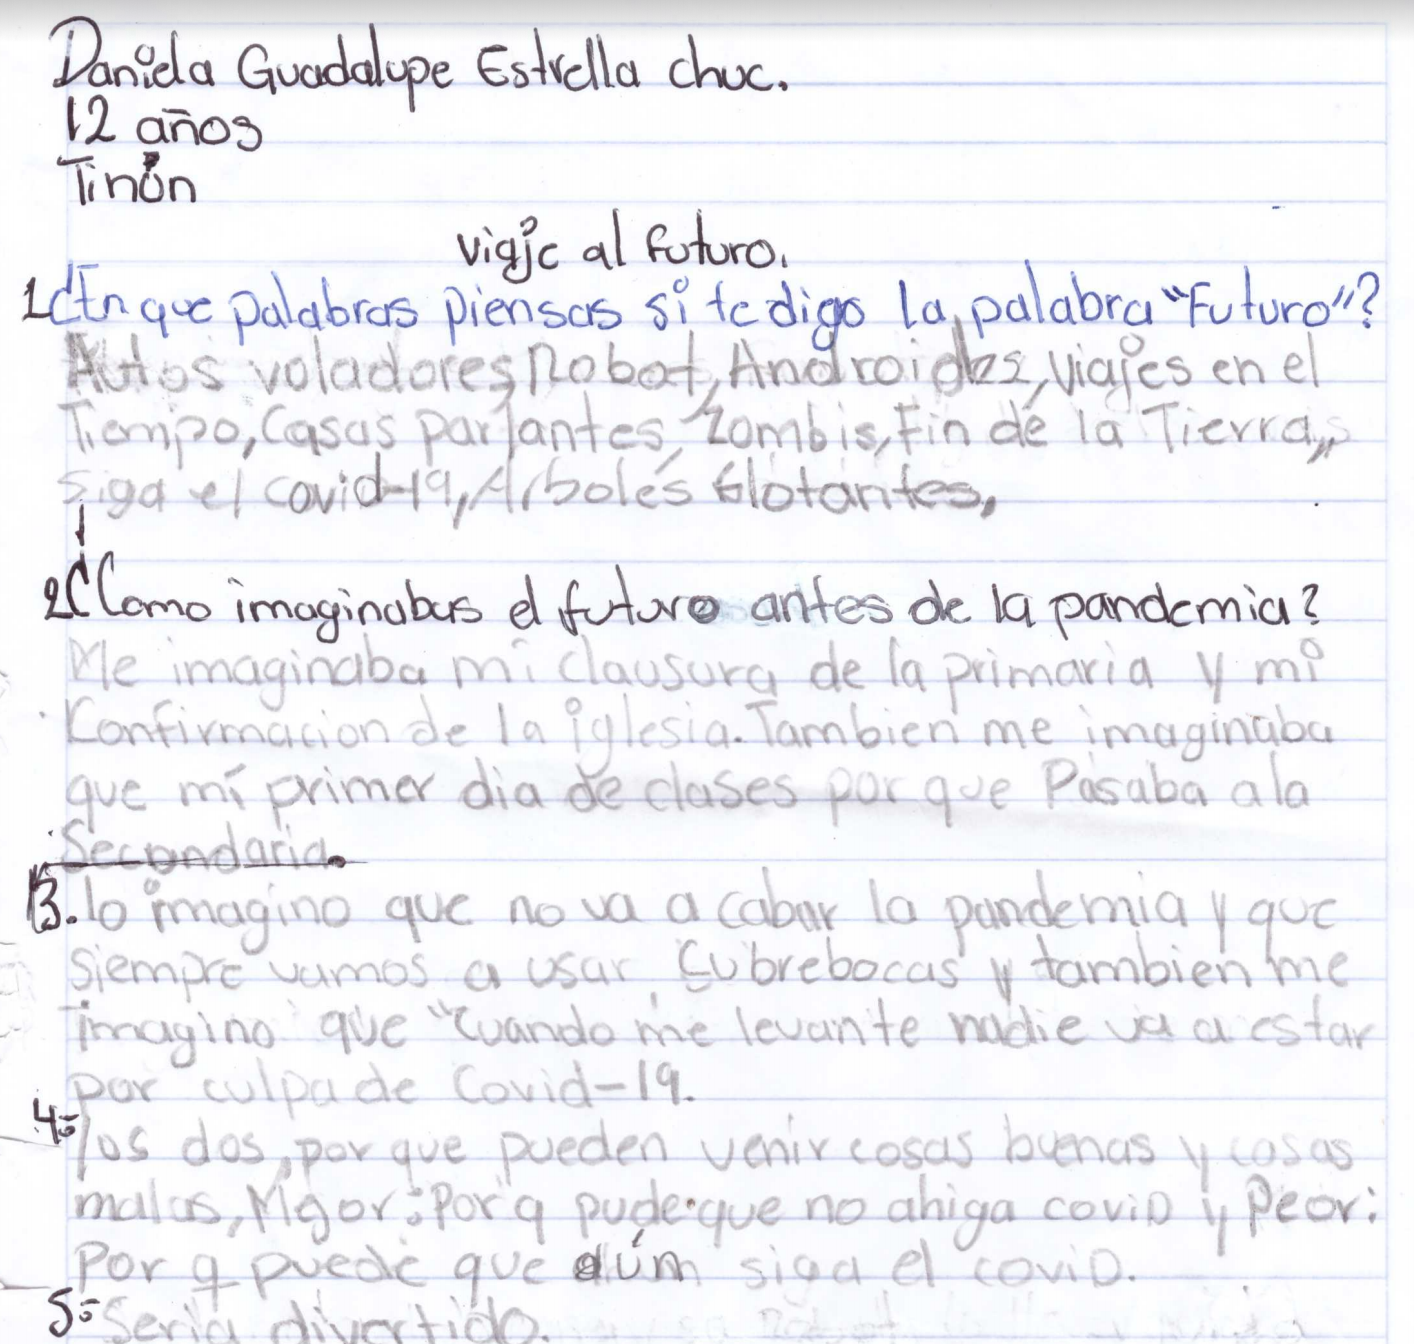 Daniela Guadalupe Estrella chuc.
12 años
Tinún
viaje al futuro.
1¿En que palabras piensas si te digo la palabra "Futuro"?
Autos voladores, Robot, Androides, viajes en el
Tiempo, Casas parlantes, Zombis, Fin de la Tierra,
siga el covid-19, Arboles flotantes,
2¿Como imaginabas el futuro antes de la pandemia?
Me imaginaba mi clausura de la primaria y mi
Confirmacion de la iglesia. Tambien me imaginaba
que mi primer dia de clases por que Pasaba a la
Secundaria.
3. lo imagino que no va a cabar la pandemia y que
siempre vamos a usar Cubrebocas y tambien me
imagino que "Cuando me levante nadie va a estar
por culpa de Covid-19.
4- los dos, por que pueden venir cosas buenas y cosas
malas, Mejor: Por q pude que no ahiga coviD y Peor:
Por q puede que aúm siga el coviD.
5- Seria divertido.